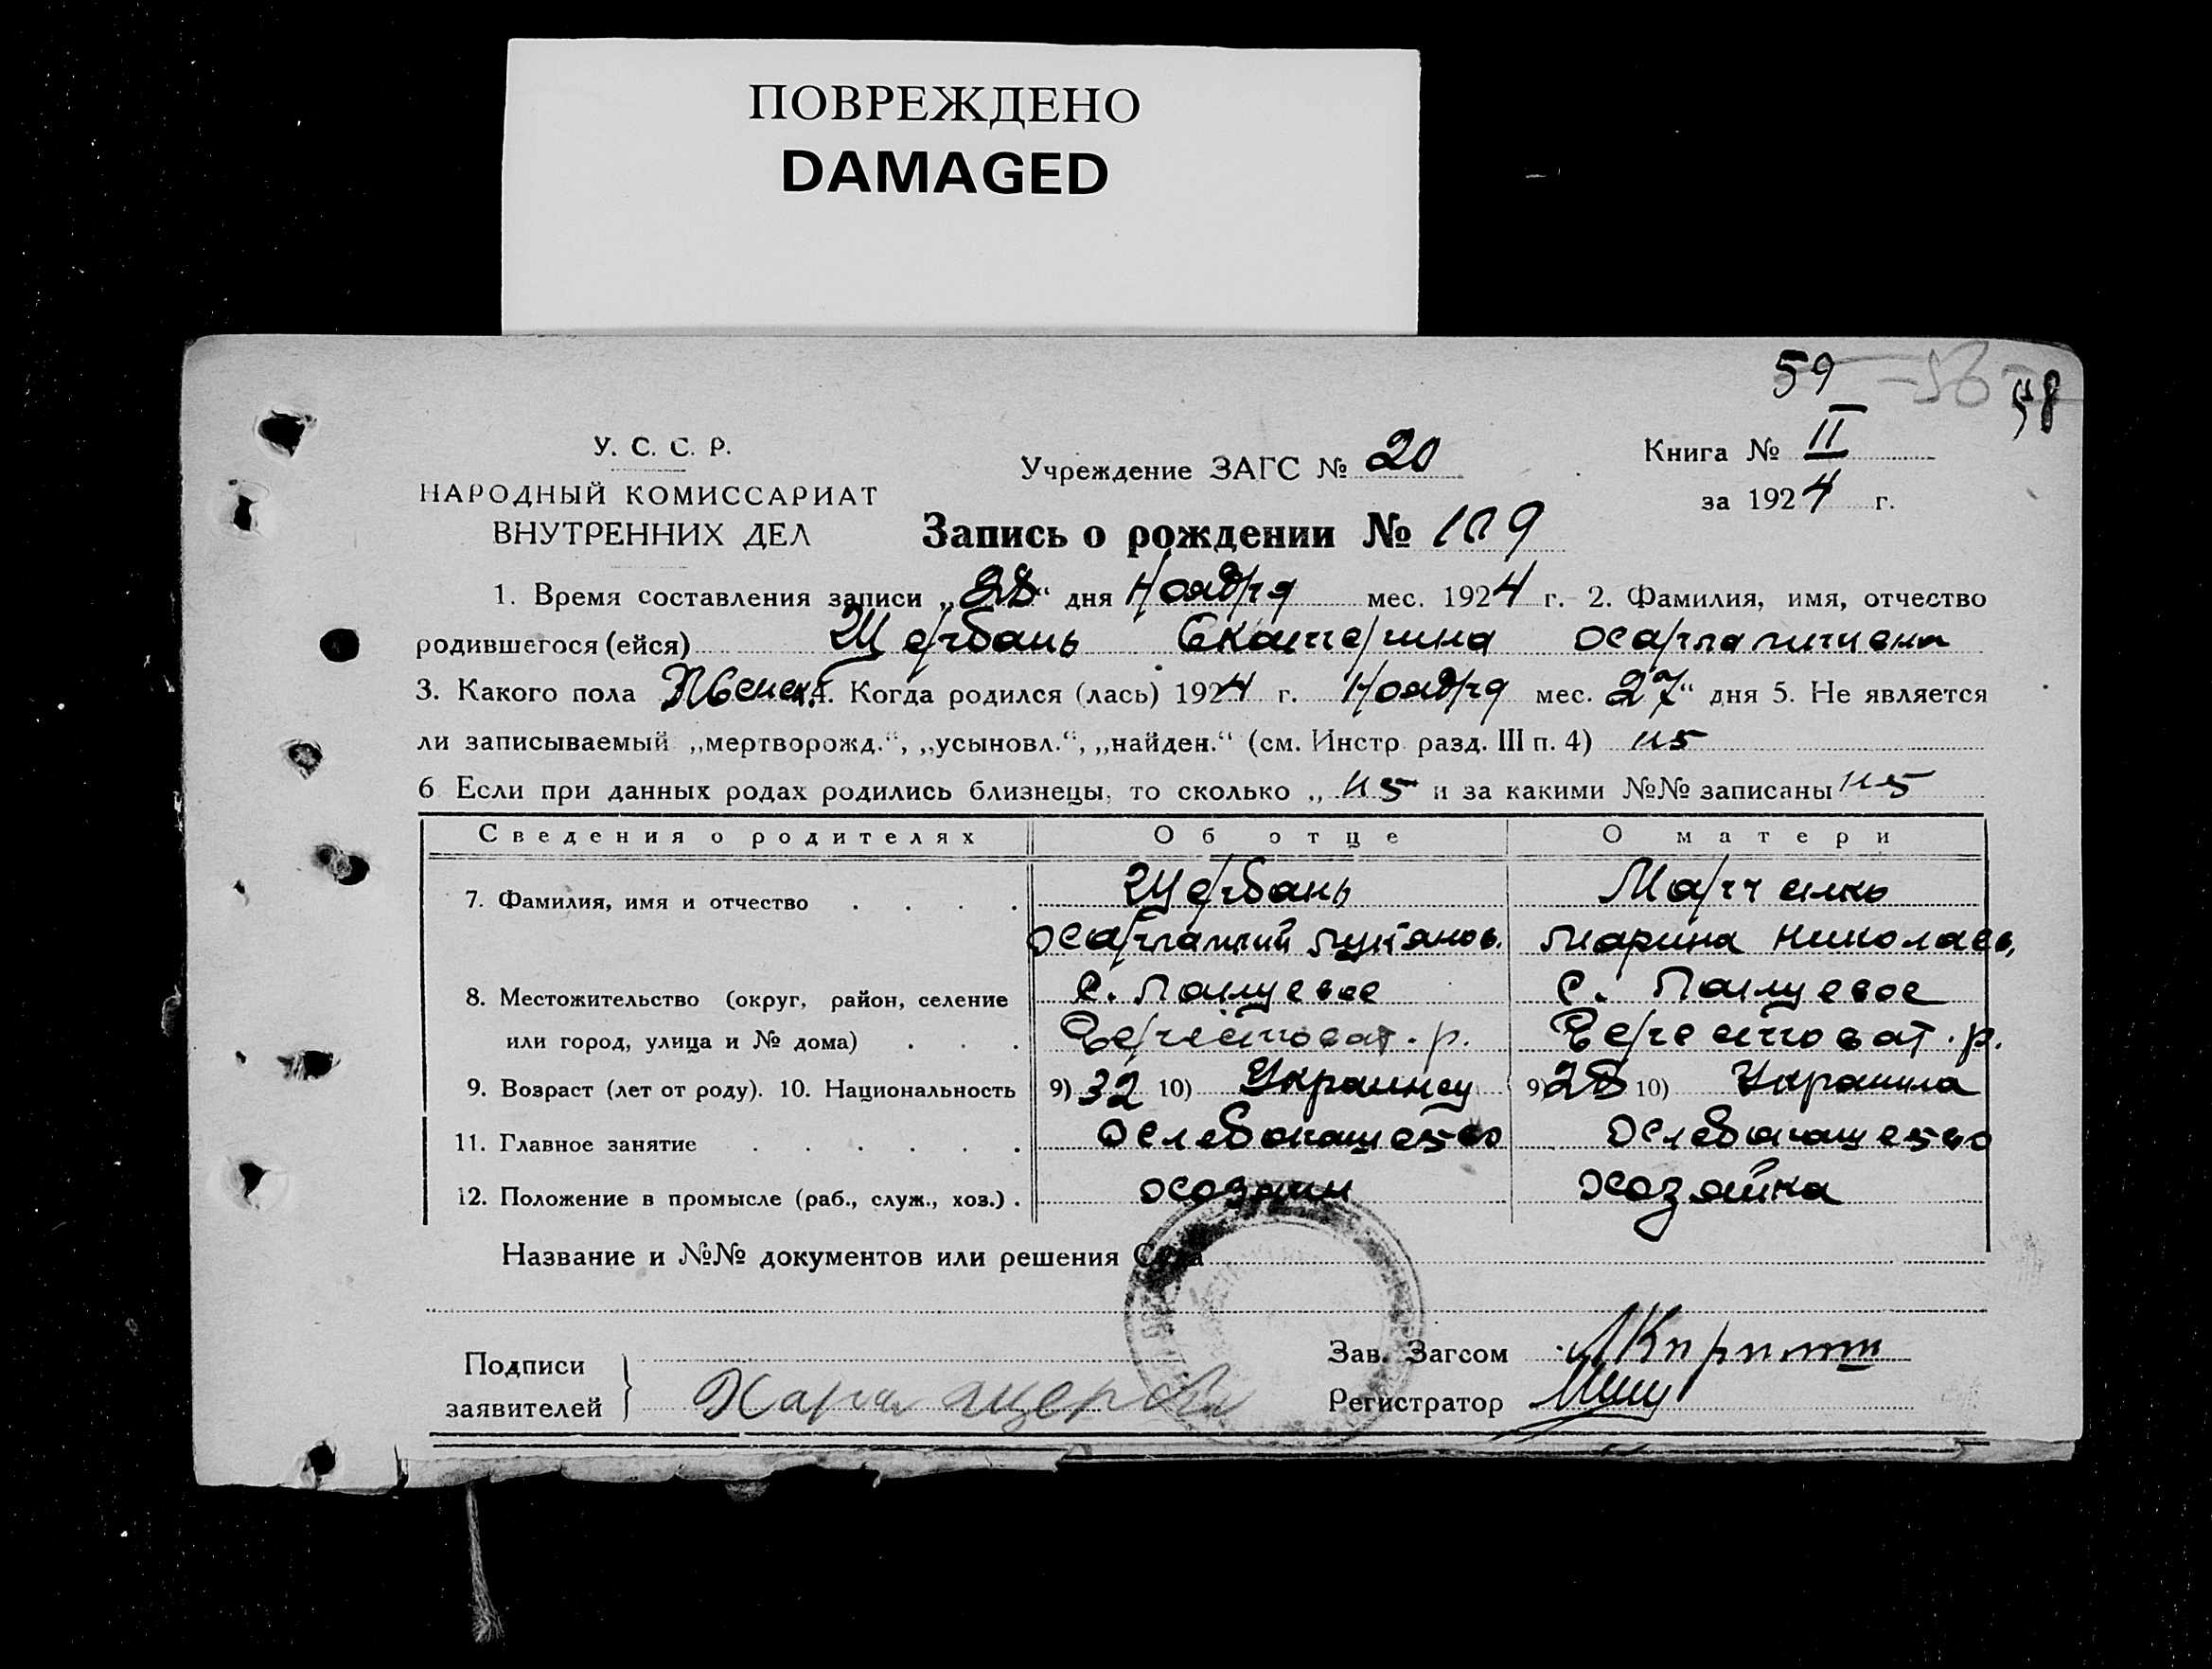 ПОВРЕЖДЕНО
DAMAGED
59 56 58
У. С. С. Р.
НАРОДНЫЙ КОМИССАРИАТ
ВНУТРЕННИХ ДЕЛ
Учреждение ЗАГС № 20
Книга № II
за 1924 г.
Запись о рождении № 109
1. Время составления записи „28“ дня Ноября мес. 1924 г. 2. Фамилия, имя, отчество
родившегося (ейся) Щербань Екатерина
3. Какого пола Женск. 4. Когда родился (лась) 1924 г. Ноября мес. 27“ дня 5. Не является
ли записываемый „мертворожд.“, „усыновл.“, „найден.“ (см. Инстр. разд. III п. 4)
6 Если при данных родах родились близнецы, то сколько „ и за какими №№ записаны
Сведения о родителях Об отце О матери
7. Фамилия, имя и отчество . . . . Щербань Марченко
Харлампий Лукьянов. Марина Николаев.
8. Местожительство (округ, район, селение с. с.
или город, улица и № дома) . . . Берестоват. р. Берестоват. р.
9. Возраст (лет от роду). 10. Национальность 9) 32 10) Украинец 9) 28 10) Украинка
11. Главное занятие . . . . . . Хлебопашество Хлебопашество
12. Положение в промысле (раб., служ., хоз.) . хозяин хозяйка
Название и №№ документов или решения Суда
Подписи
заявителей
Зав. Загсом
Регистратор